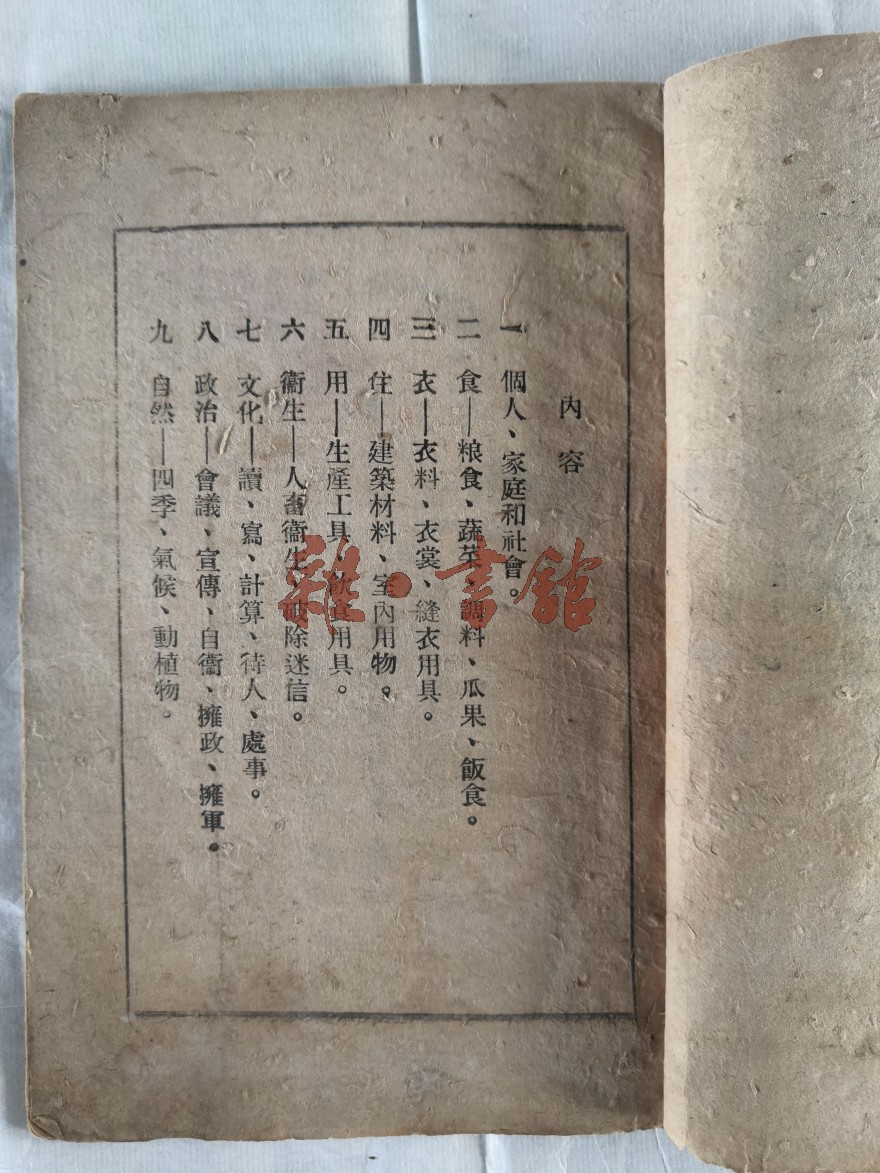 內容
一 個人、家庭和社會。
二 食——粮食、蔬菜、調料、瓜果、飯食。
三 衣——衣料、衣裳、縫衣用具。
四 住——建築材料、室內用物。
五 用——生產工具、飲食用具。
六 衞生——人畜衞生、破除迷信。
七 文化——讀、寫、計算、待人、處事。
八 政治——會議、宣傳、自衞、擁政、擁軍。
九 自然——四季、氣候、動植物。
雜·書館